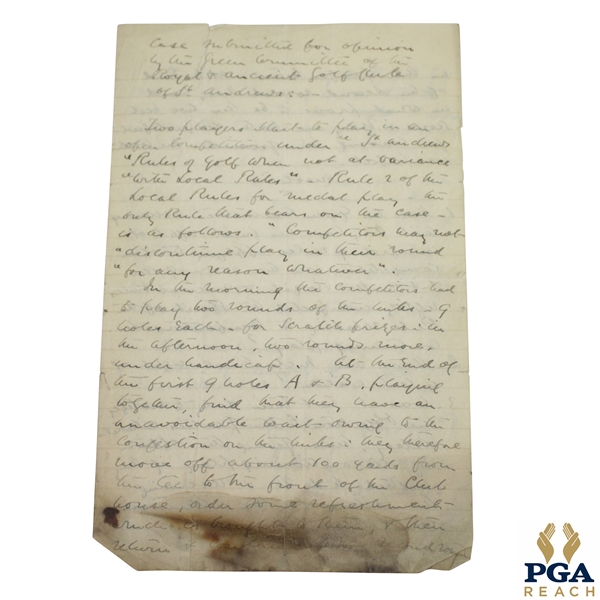 Case submitted for opinion
by the Green Committee of the
Royal & ancient Golf Club
of St. andrews:-
Two players start to play in an
open competition under "St. andrews
"Rules of Golf when not at variance
"with Local Rules" - Rule 2 of the
Local Rules for medal play - the
only Rule that bears on the case -
is as follows. "Competitors may not
"discontinue play in their round
"for any reason whatever".
In the morning the competitors had
to play two rounds of the links - 9
holes each - for Scratch prizes: in
the afternoon, two rounds more,
under handicap. At the End of
the first 9 holes A & B, playing
together, find that they have an
unavoidable wait - owing to the
congestion on the links: they therefore
move off about 100 yards from
the tee to the front of the Club
house, order some refreshment
which is brought to them, & then
return
PGA
REACH